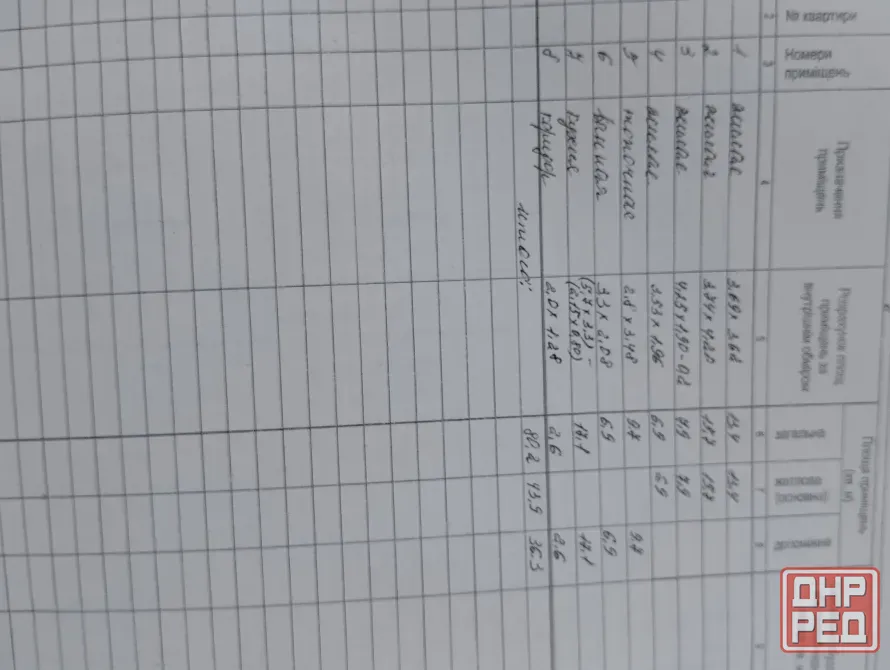 № квартири
Номери приміщень
Призначення приміщень
Розрахунок площ приміщень за внутрішнім обміром
Площа приміщень (кв.м)
загальна
житлова (основна)
допоміжна
2 3 4 5 6 7 8 9
1 жилая 3.69 x 3.62 13,4 13,4
2 жилая 3.74 x 4.20 15,7 15,7
3 жилая 4,25 x 1,90 - 0,2 7,9 7,9
4 жилая 3.53 x 1.96 6,9 6,9
5 топочная 2.8 x 3.48 9.7 9.7
6 ванная 3.3 x 2.08 6,9 6,9
7 кухня (5,7 x 3.3) - (2.15 x 0,80) 17.1 17.1
8 коридор 2,0 x 1.28 2,6 2.6
Итого: 80,2 43,9 36.3
ДНР
РЕД